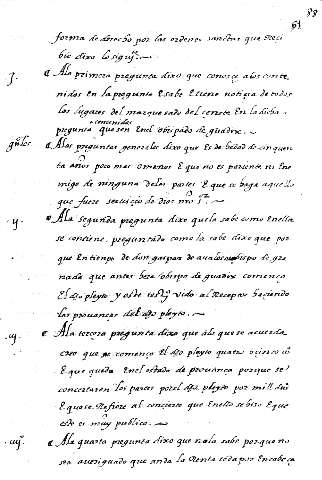 88
61
forma de derecho por las ordenes sanctas que Reci
bio dixo lo sigte.
j.
A la primera pregunta dixo que conosçe a los conte
nidos en la pregunta E sabe E tiene notiçia de todos
los lugares del marquesado del çenete En la dicha
contenidos
pregunta que son En el obispado de guadix.
gnales
A las preguntas generales dixo que Es de hedad de çinquen
ta años poco mas o menos E que no es pariente ni Ene
migo de ninguna de las partes E que se haga aquello
que fuere serviçio de dios nro sr.
ij.
A la segunda pregunta dixo que la sabe como En ella
se contiene, preguntado como la sabe dixo que por
que En tiempo de don gaspar de avalos obispo de gra
nada que antes hera obispo de guadix començo
El dho pleyto y este testigo vido al Reçeptor haziendo
las provanças del dho pleyto.
iij.
A la terçera pregunta dixo que a lo que se acuerda
creo que se començo El dho pleyto quatro
E que quedo En el estado de provança porque se
conçertaron las partes por el dho pleyto por mill
E que se Refiere al conçierto que En ello se hizo E que
esto es muy publico.
iiij.
A la quarta pregunta dixo que no la sabe porque no
sea averiguado que anda la Renta toda por Encabeça